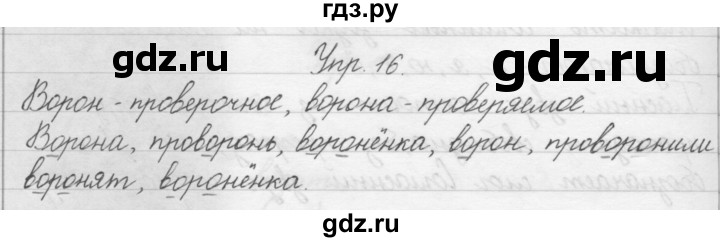 гдз.ру
gdz.ru
gdz.ru
Упр. 16.
Ворон - проверочное, ворона - проверяемое.
Ворона, проворонь, воронёнка, ворон, проворонили
воронят, воронёнка.
gdz.ru